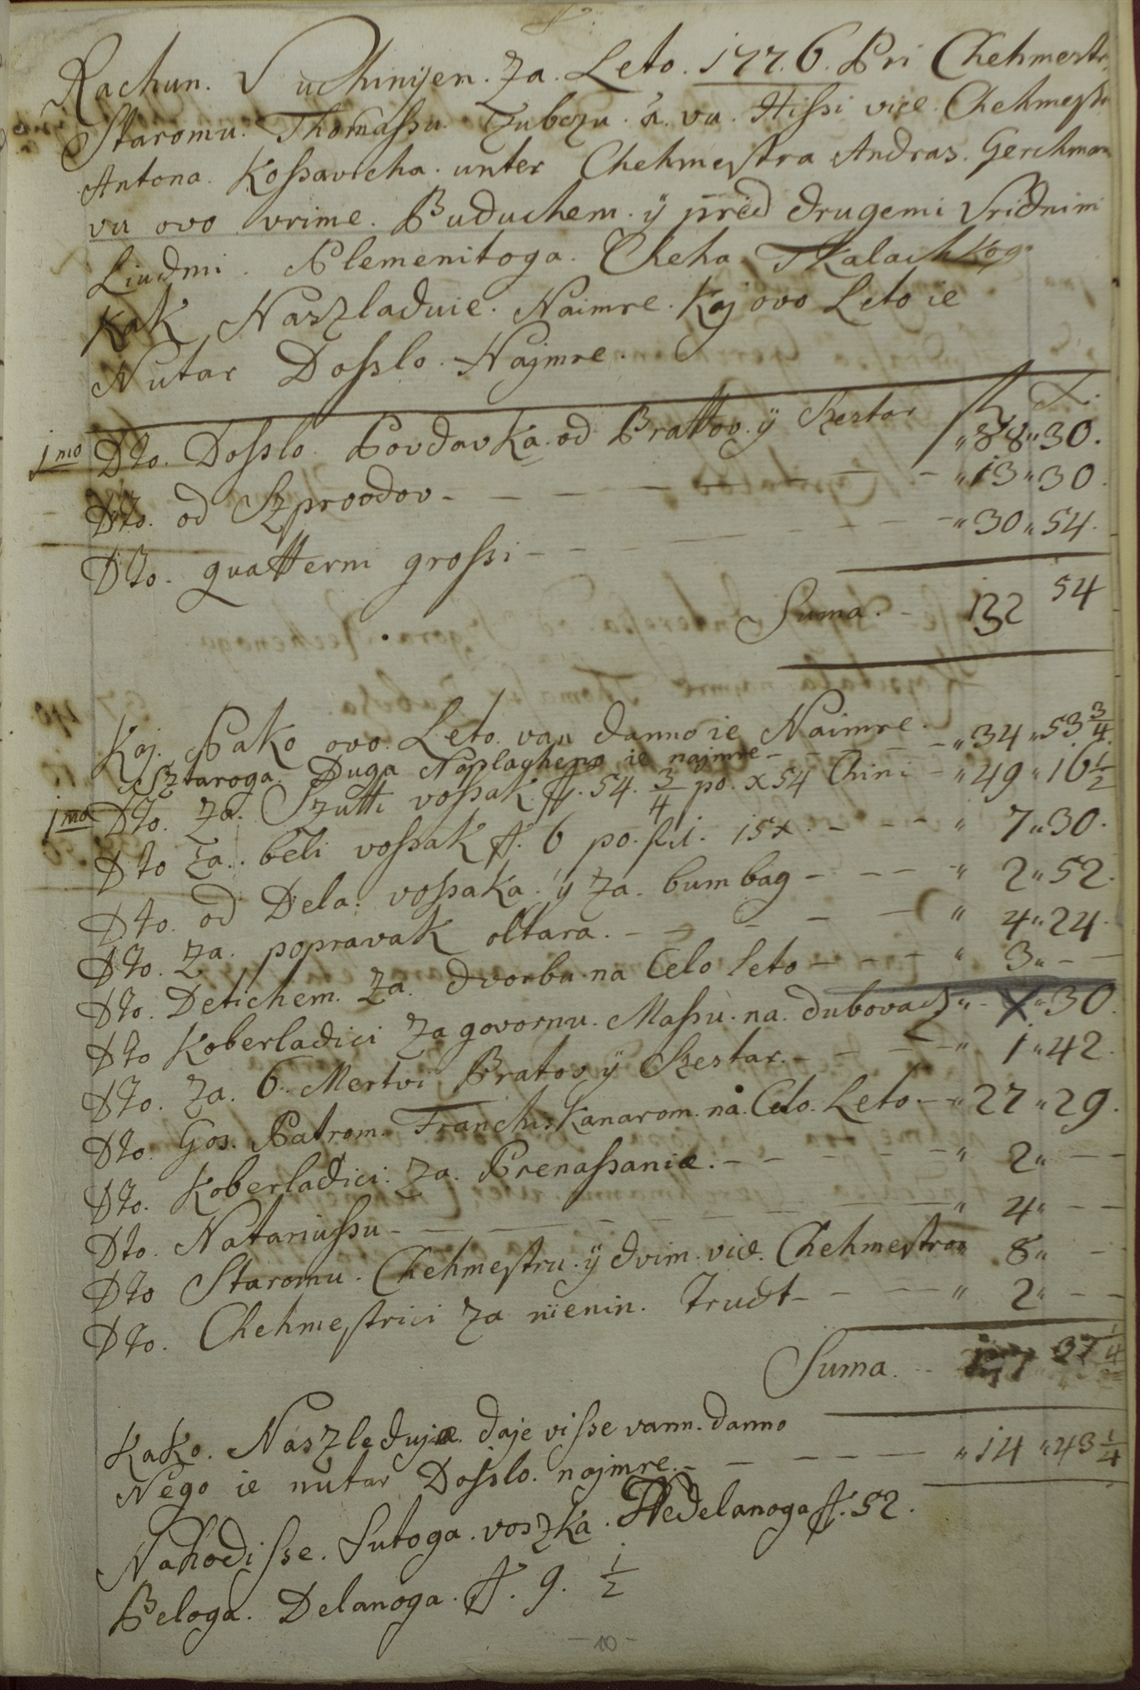 Rachun. Vuchinyen. Za. Leto. 1776. Pri Chehmestr
Staromu. Thomassu. Zubczu. a. vu. Hissi vice. Chehmestr
Antona. Kossavicha. unter Chehmestra Andras. Gerchman
vu ovo vrime. Buduchem. ÿ pred drugemi Vridnimi
Liudmi. Plemenitoga. Cheha Tkalachkog
Kak Naszladuie. Naimre. Kaj ovo Leto ie
Nutar Dosslo. Najmre.
f x.
1mo Dto. Dosslo. Povdavka. od Brattov. ÿ Szestar „88„30.
Dto. od Szprovodov - - - „13„30.
Dto. quatterni grossi - - - „30„54.
Suma. - 132 54
Kaj. Pako ovo. Leto. van danno ie Naimre.
Sztaroga. Duga Naplagheno ie najmre - - - „34„53 3/4
1mo Dto. Za. Szutti vossak ℔. 54. 3/4 po. x54 Chini - „49„16 1/2
Dto Za. beli vossak ℔. 6 po. f.1. 15x. - - - „ 7„30.
Dto. od Dela. vossaka. ÿ za. bumbag - - - „ 2„52.
Dto. Za. popravak oltara. - - - „ 4„24.
Dto. Detichem. Za. dvorbu. na Celo leto - - - „ 3„ - -
Dto Koberladici Za govornu. Massu. na. dubovacz „ - X„30.
Dto. Za. 6. Mertvi Bratov ÿ Szestar. - - - „ 1„42.
Dto. Gos. Patrom. Franchiskanarom. na. Celo. Leto - „27„29.
Dto. Koberladici. Za. Prenassanie. - - - „ 2„ - -
Dto. Natariussu - - - „ 4„ - -
Dto Staromu. Chehmestru. ÿ dvim. vice. Chehmestrom „ 8„ -
Dto. Chehmestrici za nienin. Trudt - - - „ 2„ - -
Suma. - - 147 37 1/4
Kako. Naszleduje. daje visse vann. danno
Nego ie nutar Dosslo. najmre. - - - „14„43 1/4
Nahodi sse. Sutoga. voszka. Nedelanoga ℔. 52.
Beloga. Delanoga. ℔. 9. 1/2
- 10 -